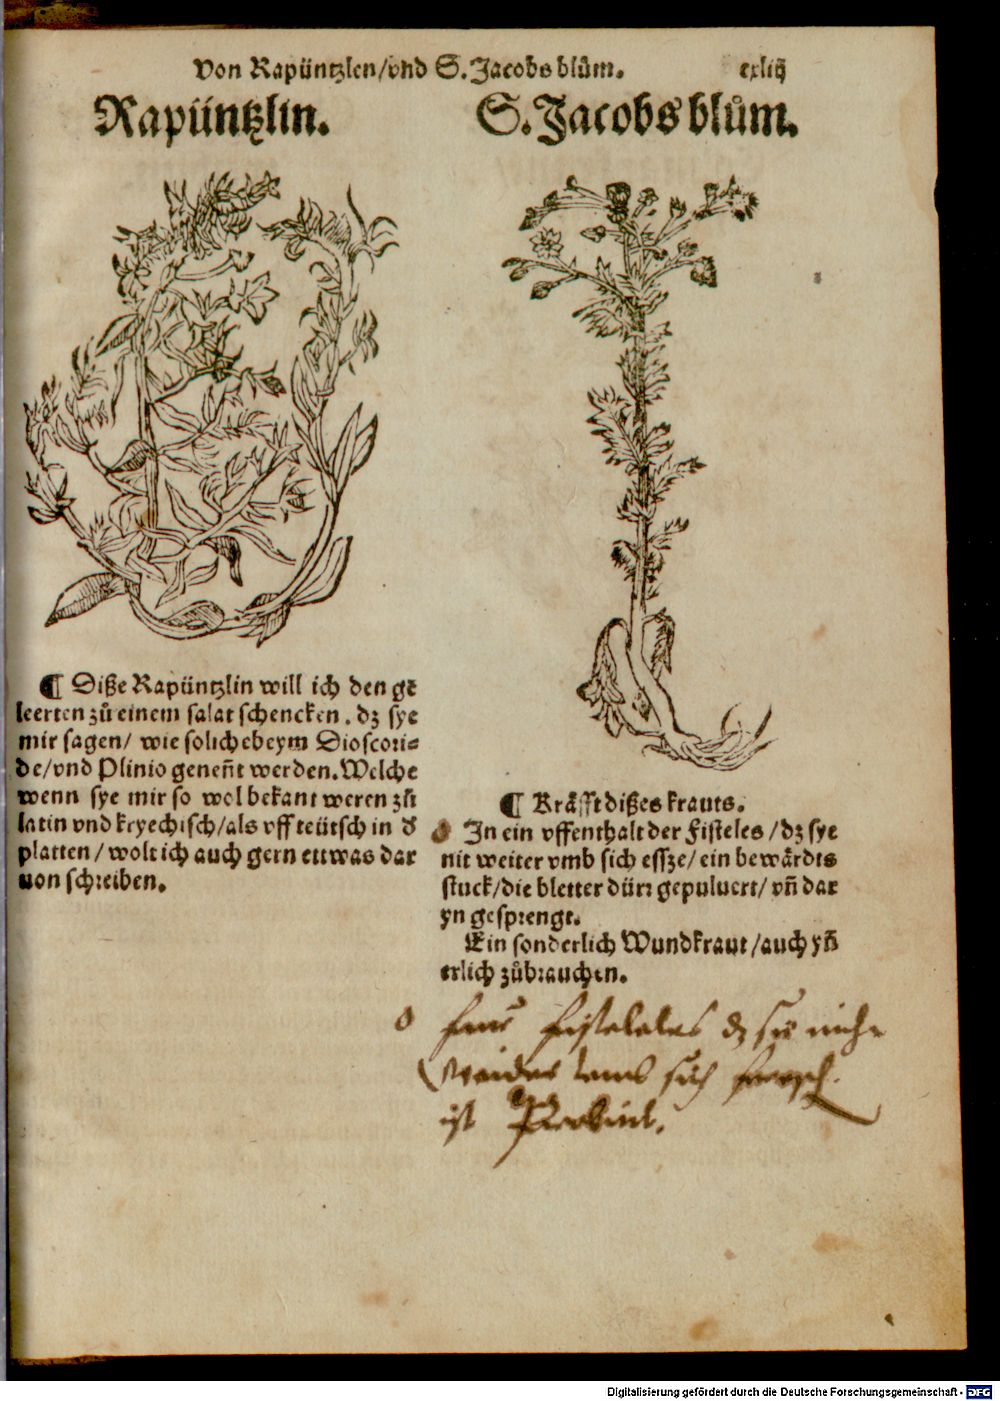 Von Rapüntzlen/vnd S. Jacobs blům.
Rapüntzlin.
¶ Diße Rapüntzlin will ich den gē
leerten zů einem salat schencken. dz sye
mir sagen/ wie solich ebeym Dioscori⸗
de/vnd Plinio geneñt werden. Welche
wenn sye mir so wol bekant weren zů
latin vnd kryechisch/als vff teütsch in d
platten/ wolt ich auch gern ettwas dar
uon schreiben.
S. Jacobs blům.
¶ Kräfft dißes krauts.
In ein vffenthalt der Fisteles/dz sye
nit weiter vmb sich essze/ein bewärdts
stuck/die bletter dürr gepuluert/vñ dar
yn gesprengt.
Ein sonderlich Wundkraut/auch yñ
erlich zůbrauchen.
fisteles dz sie nicht
weider sich
ist
Digitalisierung gefördert durch die Deutsche Forschungsgemeinschaft - DFG